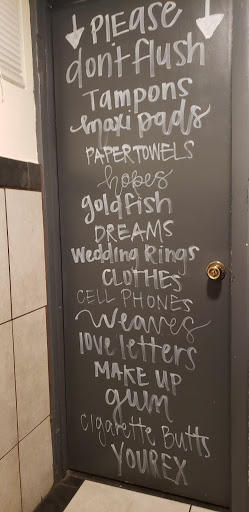 PlEase
dont flush
Tampons
maxi pads
PAPERTOWELS
hopes
goldfish
DREAMS
Wedding Rings
CLOTHES
CELL PHONES
weaves
love letters
MAKE UP
gum
cigarette Butts
YOUREX